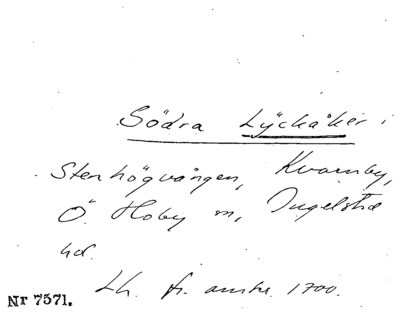 Södra Lyckåker i
Stenhögvången, Kvarnby,
Ö. Hoby sn, Ingelstad
hd.
Lh. fr. omkr. 1700.
Nr 7571.